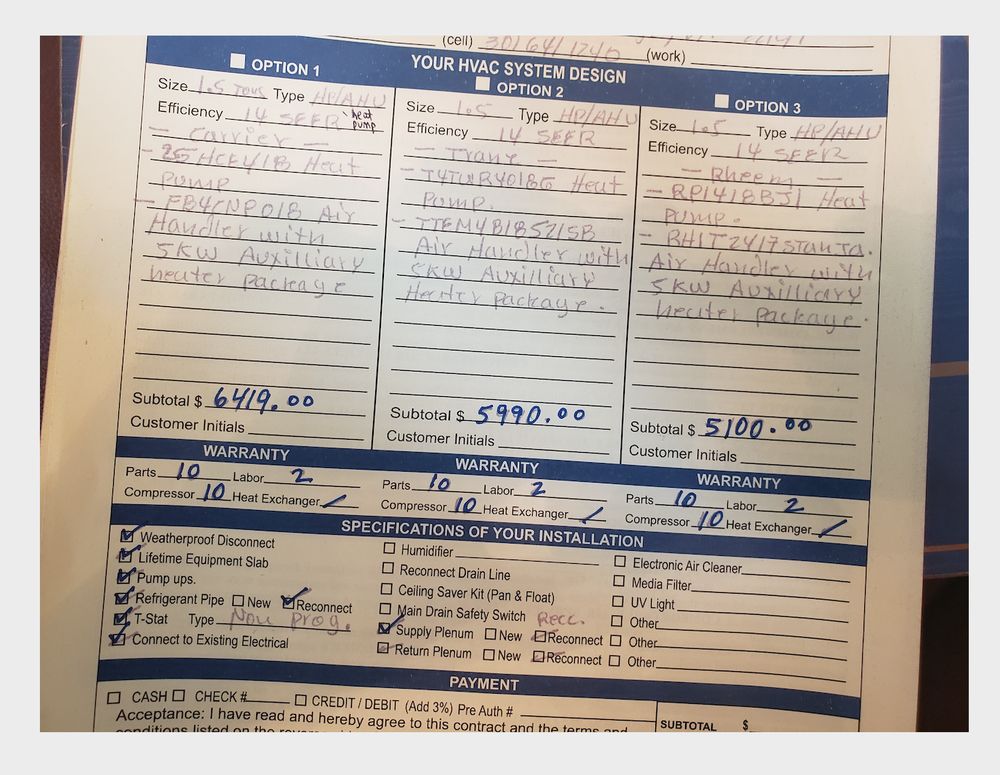 (cell) 301 641 1240 (work)
YOUR HVAC SYSTEM DESIGN
OPTION 1
Size 1.5 Tons Type HP/AHU
Efficiency 14 SEER heat pump
- Carrier -
- Heat
Pump
- FB4CNP018 Air
Handler with
5KW Auxilliary
heater package
Subtotal $ 6419.00
Customer Initials
OPTION 2
Size 1.5 Type HP/AHU
Efficiency 14 SEER
- Trane -
- Heat
Pump.
-
Air Handler with
5KW Auxilliary
Heater package.
Subtotal $ 5990.00
Customer Initials
OPTION 3
Size 1.5 Type HP/AHU
Efficiency 14 SEER
- Rheem -
- RP1418BJ1 Heat
Pump.
- RH1T2417STANJA.
Air Handler with
5KW Auxilliary
heater package.
Subtotal $ 5100.00
Customer Initials
WARRANTY
Parts 10 Labor 2
Compressor 10 Heat Exchanger /
WARRANTY
Parts 10 Labor 2
Compressor 10 Heat Exchanger /
WARRANTY
Parts 10 Labor 2
Compressor 10 Heat Exchanger /
SPECIFICATIONS OF YOUR INSTALLATION
Weatherproof Disconnect
Lifetime Equipment Slab
Pump ups.
Refrigerant Pipe New Reconnect
T-Stat Type Non prog.
Connect to Existing Electrical
Humidifier
Reconnect Drain Line
Ceiling Saver Kit (Pan & Float)
Main Drain Safety Switch Recc.
Supply Plenum New Reconnect
Return Plenum New Reconnect
Electronic Air Cleaner
Media Filter
UV Light
Other
Other
Other
PAYMENT
CASH CHECK # CREDIT / DEBIT (Add 3%) Pre Auth #
Acceptance: I have read and hereby agree to this contract and the terms and
conditions listed on the
SUBTOTAL $